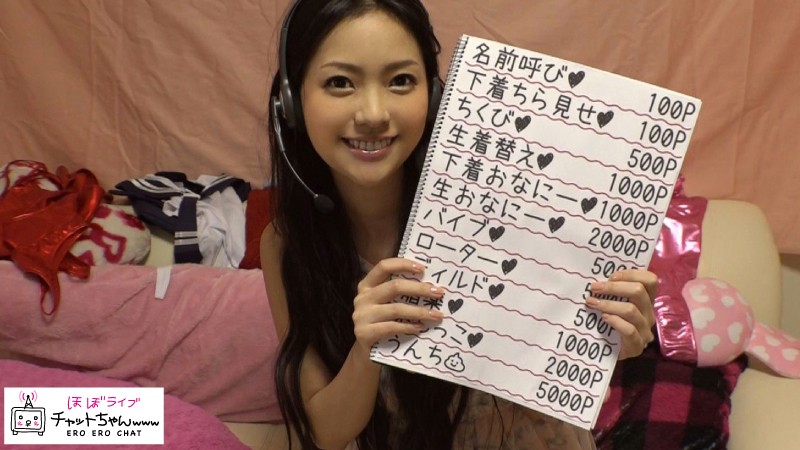 名前呼び♥ 100P
下着ちら見せ♥ 100P
ちくび♥ 500P
生着替え♥ 1000P
下着おなにー♥ 1000P
生おなにー♥ 2000P
バイブ♥
ローター♥
ディルド♥ 500P
♥ 1000P
♥ 2000P
うんち 5000P
ほぼライブ
チャットちゃんwww
ERO ERO CHAT